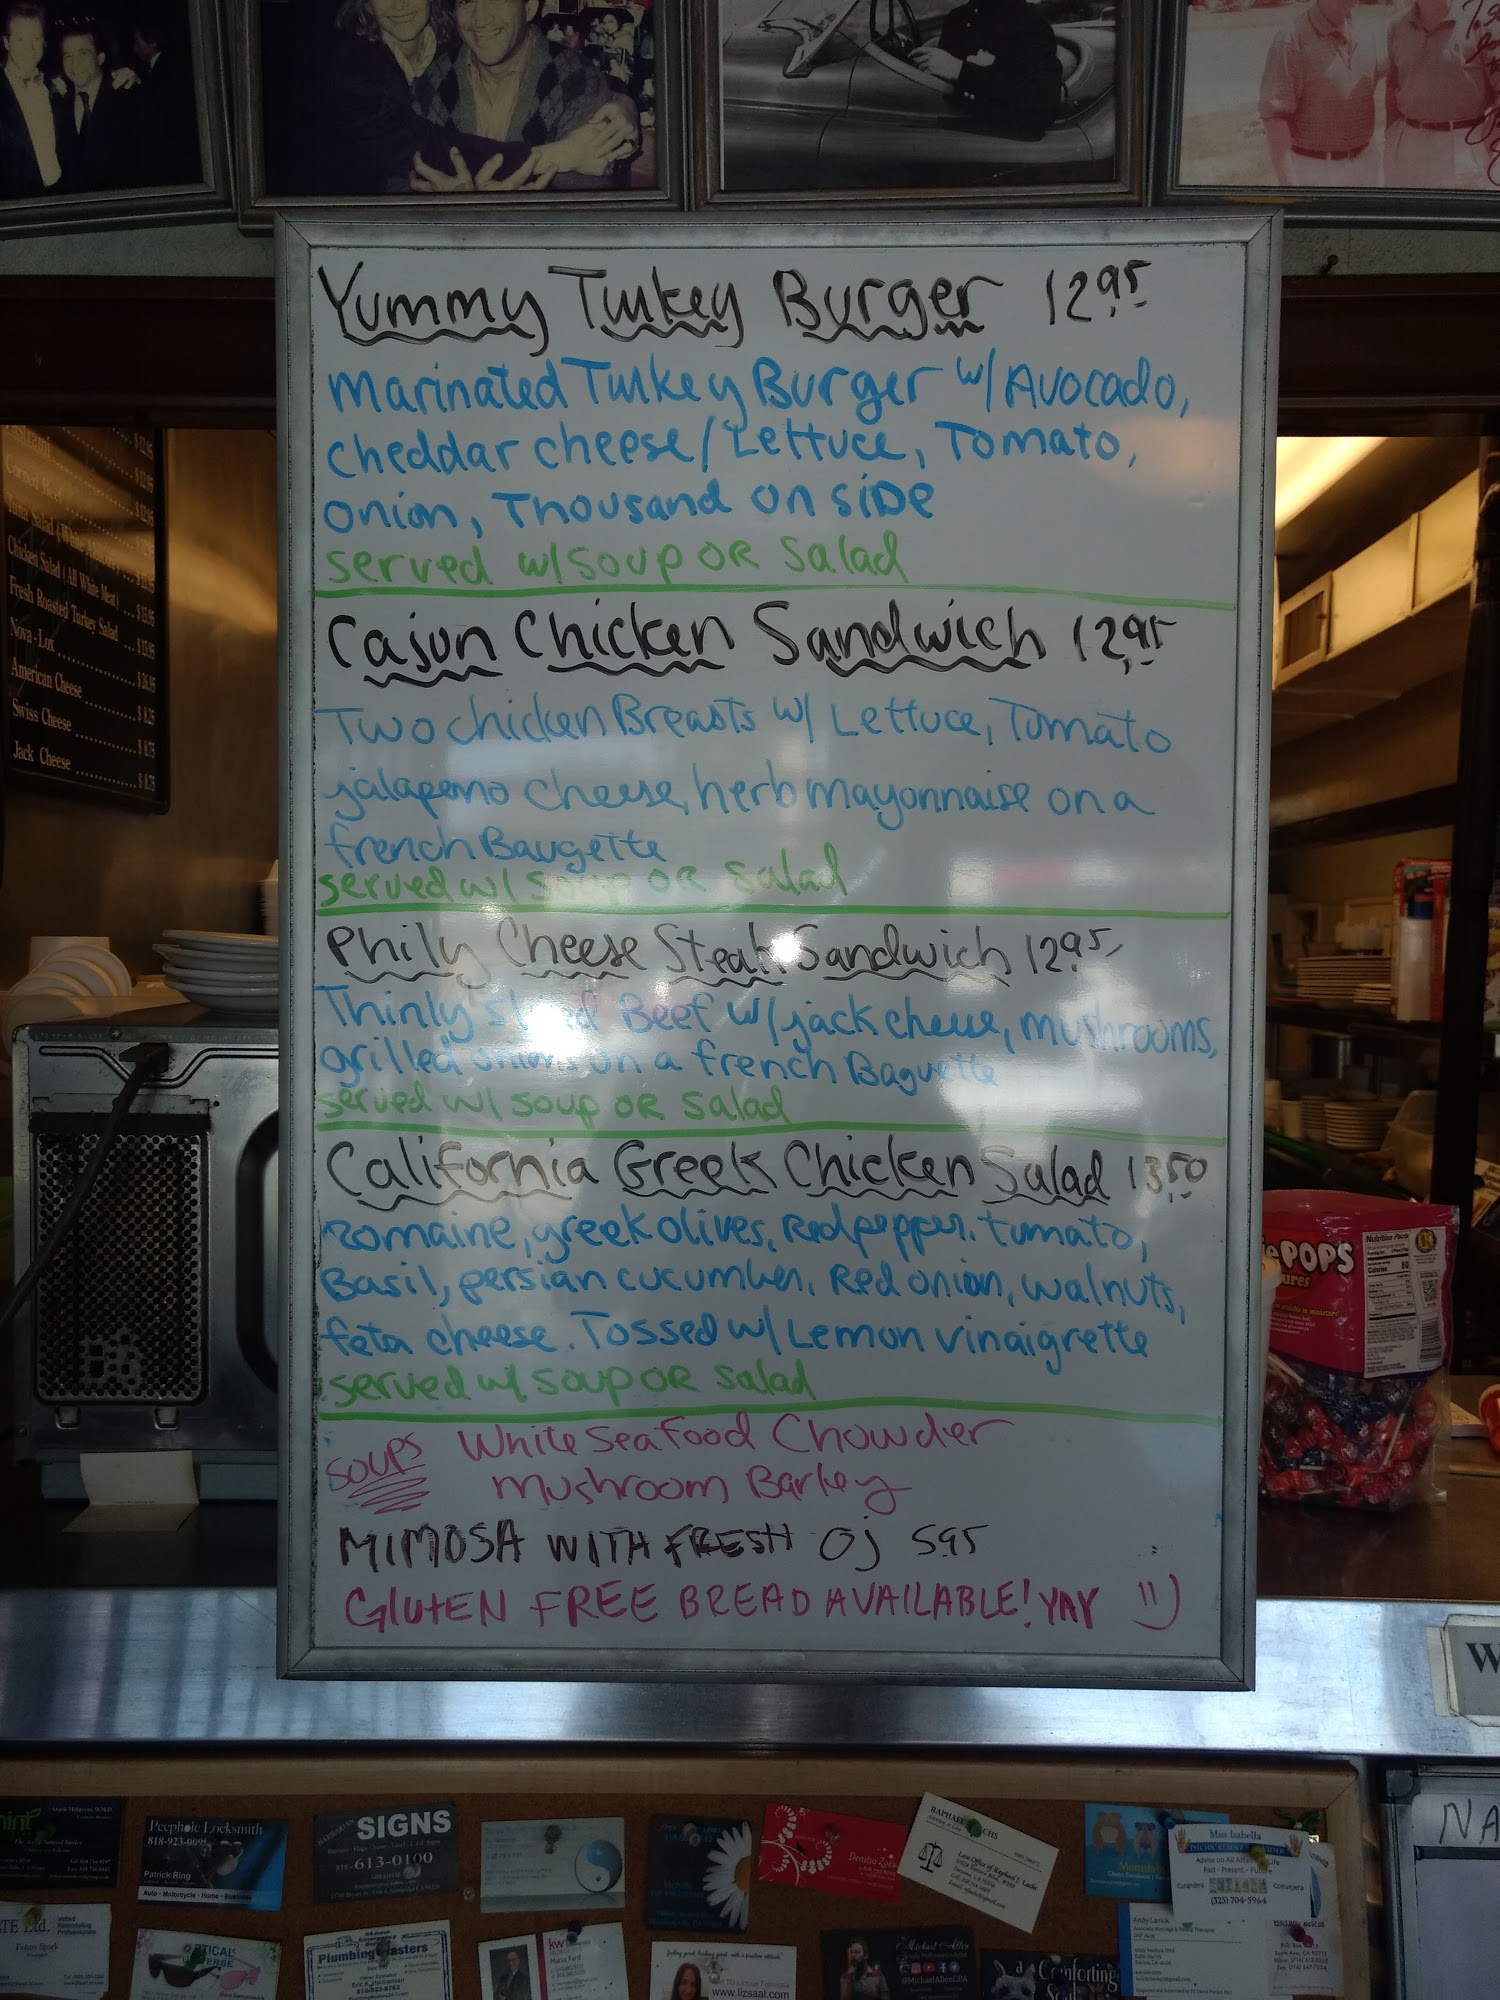 Yummy Turkey Burger 12.95
Marinated Turkey Burger w/ Avocado,
cheddar cheese/Lettuce, Tomato,
onion, Thousand on side
served w/ soup OR salad
Cajun Chicken Sandwich 12.95
Two chicken Breasts w/ Lettuce, Tomato
jalapeno cheese, herb mayonnaise on a
french Baugette
served w/ soup OR salad
Philly Cheese Steak Sandwich 12.95
Thinly Beef w/ jack cheese, mushrooms,
grilled onions on a french Baguette
served w/ soup OR salad
California Greek Chicken Salad 13.50
Romaine, greek olives, Red pepper, tumato,
Basil, persian cucumber, Red onion, walnuts,
feta cheese. Tossed w/ Lemon vinaigrette
served w/ soup OR salad
soups White Seafood Chowder
mushroom Barley
MIMOSA WITH FRESH OJ 5.95
GlutEN FREE BREAD AVAILABLE! YAY
Chicken Salad (All White Meat) ... $13.95
Fresh Roasted Turkey Salad ... $13.95
Nova - Lox
American Cheese ... $8.25
Swiss Cheese ... $8.75
Jack Cheese ... $8.75
POPS
Nutrition Facts
W
NA
Peephole Locksmith
Patrick Ring
Auto - Motorcycle - Home - Business
SIGNS
818-613-0100
Law Office of Raphael
Miss Isabella
Past - Present - Future
(323) 704-5964
Andy
Plumbing Masters
kw
www.lizsaal.com
Michael Allen
@MichaelAllenCPA
a Comforting